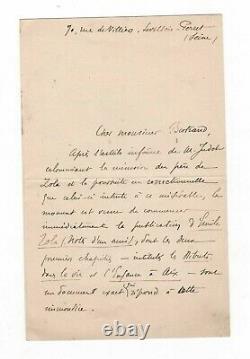 70, rue de Villiers, Levallois-Perret
(Seine)
Cher monsieur Bertrand,
Après l'article infâme de M. Judet
calomniant la mémoire du père de
Zola et la poursuite en correctionnelle
que celui-ci intente à ce misérable, le
moment est venu de commencer
immédiatement la publication d'Emile
Zola (Notes d'un ami), dont les deux
premiers chapitres — intitulés les Débuts
dans la vie et l'Enfance à Aix — sont
un document exact qui répond à cette
immondice.